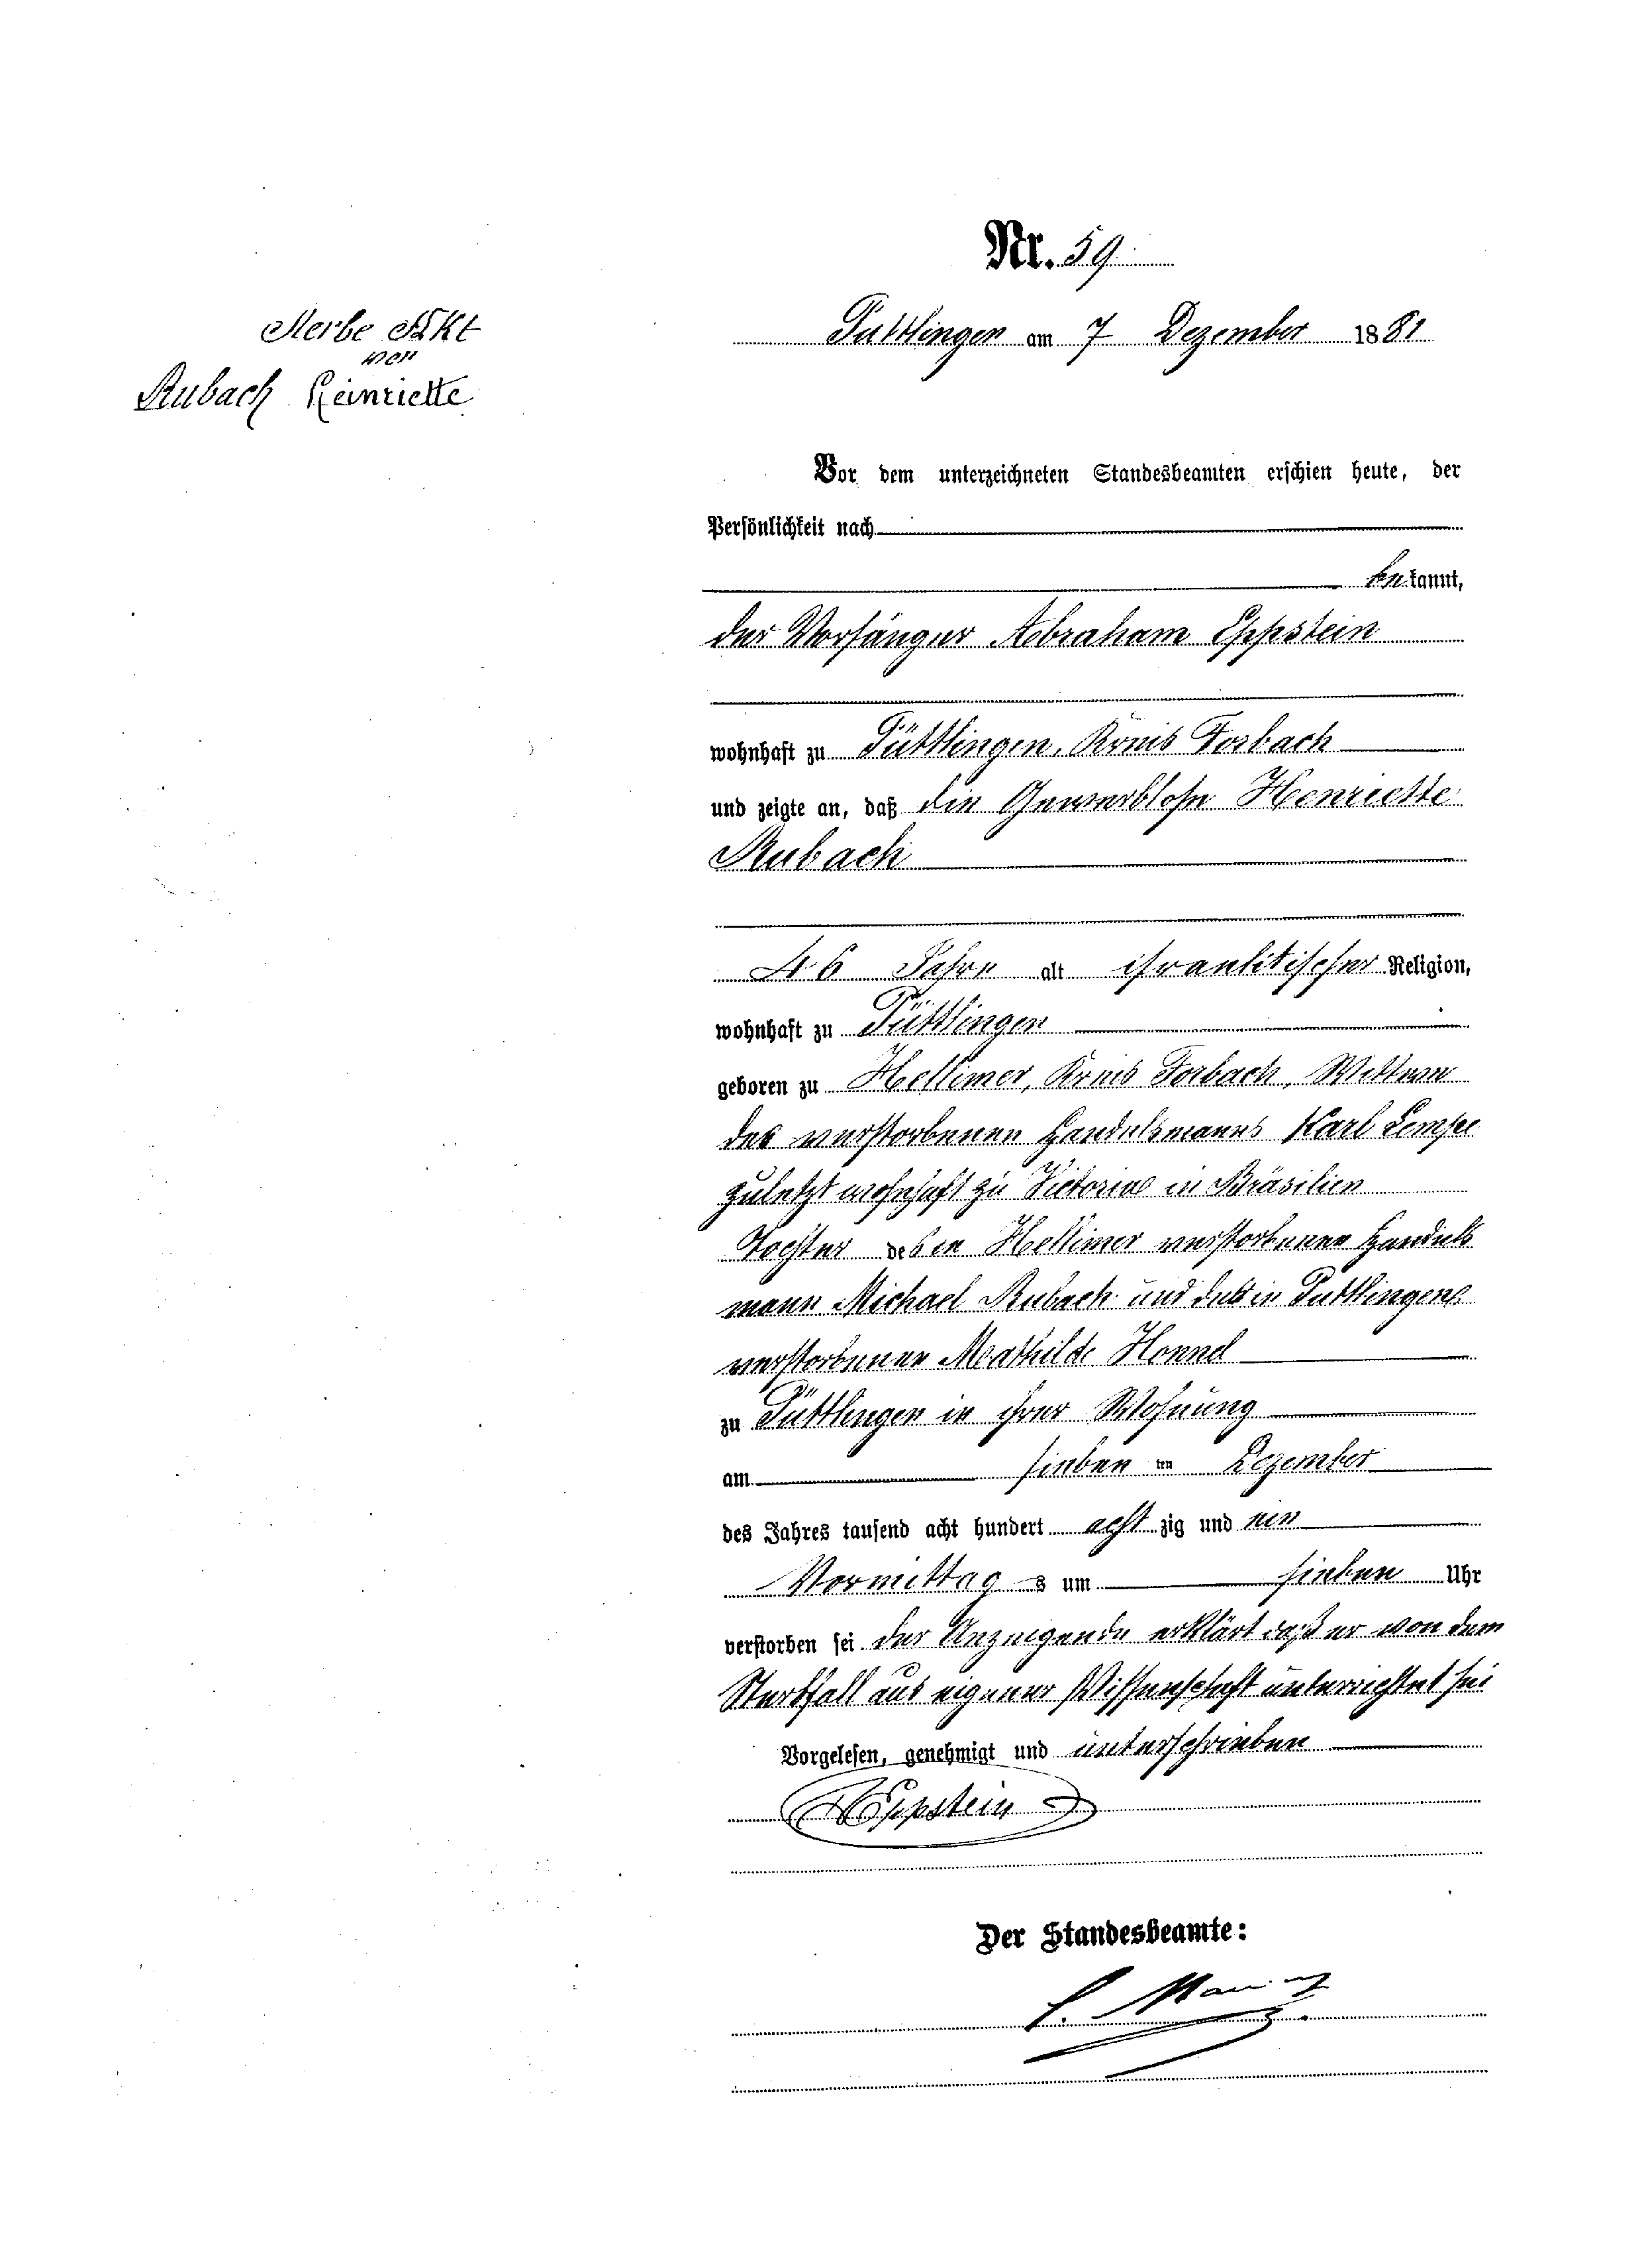 Nr. 59
Sterbe Akt
von
Rubach Heinriette
Puttlingen am 7 Dezember 1881
Vor dem unterzeichneten Standesbeamten erschien heute, der
Persönlichkeit nach
bekannt,
der Vorsänger Abraham Eppstein
wohnhaft zu Püttlingen, Kreis Forbach
und zeigte an, daß die Gewerblose Henriette
Rubach
46 Jahre alt israelitischer Religion,
wohnhaft zu Püttlingen
geboren zu Hellimer, Kreis Forbach, Wittwe
des verstorbenen Handelsmanns Karl
zuletzt wohnhaft zu Victoria in Bräsilien
Tochter des in Hellimer verstorbenen Handels
mann Michael Rubach und das in Puttlingen
verstorbenen Mathilde Honnel
zu Püttlingen in ihrer Wohnung
am sieben ten Dezember
des Jahres tausend acht hundert acht zig und ein
Vormittag s um sieben Uhr
verstorben sei der Anzeigende erklärt daß er von dem
Sterbfall aus eigener Wissenschaft unterrichtet sei
Vorgelesen, genehmigt und unterschrieben
A Eppstein
Der Standesbeamte: